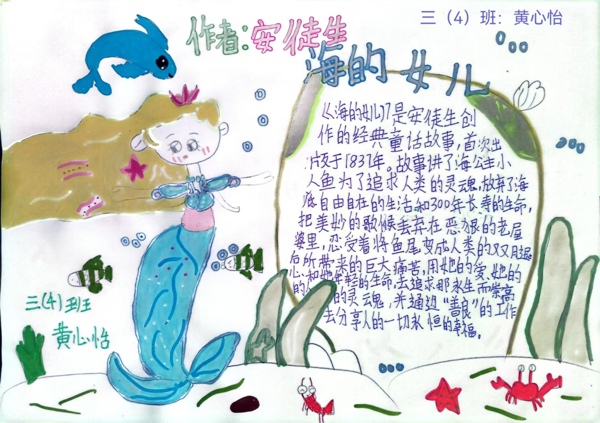 三（4）班：黄心怡
作者：安徒生
海的女儿
《海的女儿》是安徒生创
作的经典童话故事，首次出
版于1837年。故事讲了海公主小
人鱼为了追求人类的灵魂，放弃了海
底自由自在的生活和300年长寿的生命，
把美妙的歌喉丢弃在恶狠的巫
婆里，忍受着将鱼尾变成人类的双腿
后所带来的巨大痛苦，用她的爱、她的
心和她年轻的生命，去追求那永生而崇高
的灵魂，并通过“善良”的工作
去分享人的一切永恒的幸福。
三（4）班
黄心怡